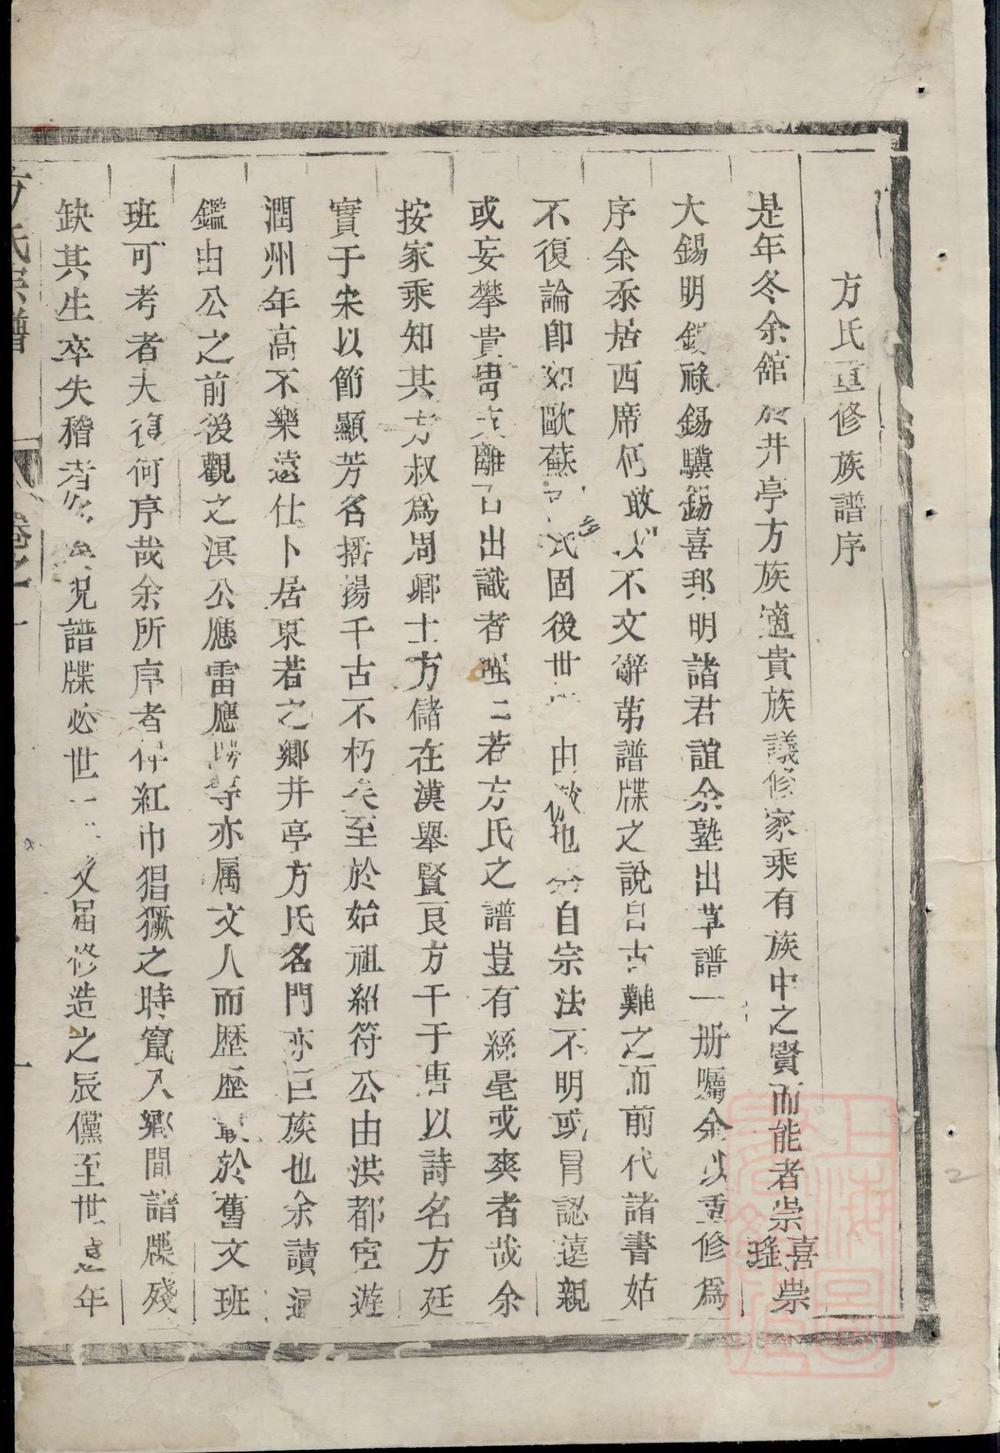 方氏重修族譜序
是年冬余館於井亭方族適貴族議修家乘有族中之賢而能者崇喜崇瑤
大錫明錢祿錫驥錫喜邦明諸君誼余塾出草譜一册囑余以重修爲
序余忝居西席何敢以不文辭第譜牒之說自古難之而前代諸書姑
不復論即如歐蘇氏固後世由倣也自宗法不明或冒認遠親
或妄攀貴胄支離百出識者嗤之若方氏之譜豈有絲毫或爽者哉余
按家乘知其方叔爲周卿士方儲在漢舉賢良方干于唐以詩名方廷
實于宋以節顯芳名播揚千古不朽矣至於始祖紹符公由洪都宦遊
潤州年高不樂遠仕卜居東若之鄉井亭方氏名門亦巨族也余讀通
鑑由公之前後觀之溟公應雷應時等亦属文人而歷歷載於舊文班
班可考者夫復何序哉余所序者伴紅巾猖獗之時竄入鄉間諸牒殘
缺其生卒失稽者況譜牒必世一又届修造之辰儻至世遠年
方氏宗譜 卷之一 一